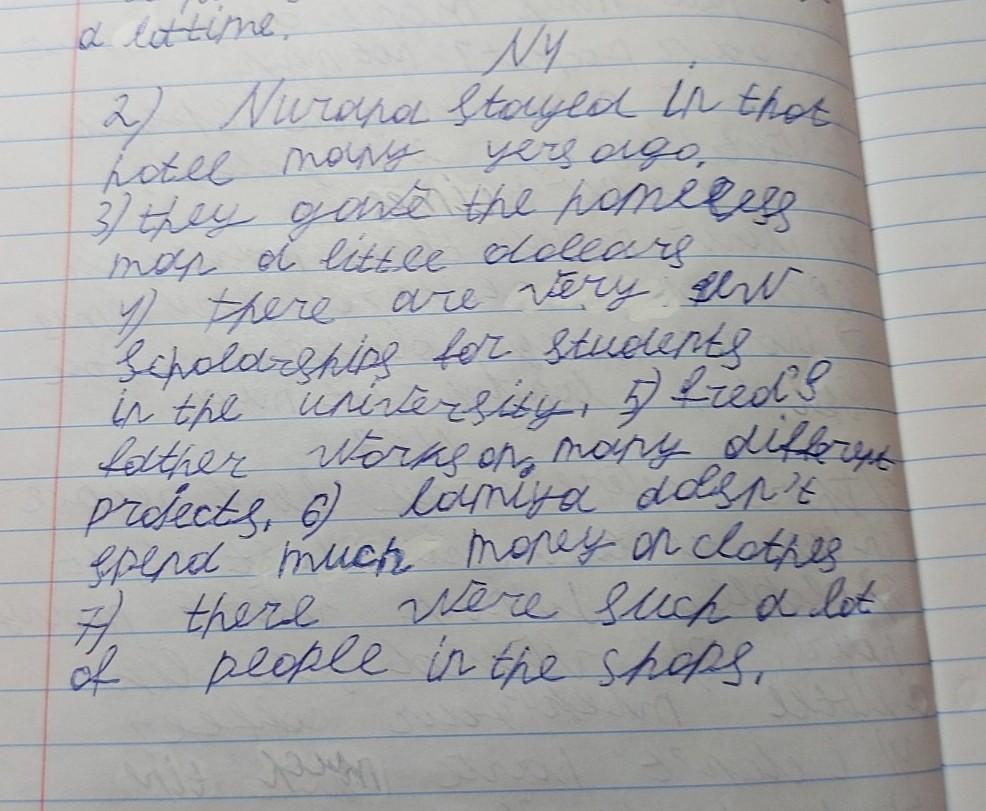 a lottime.
N4
2) Nurana stayed in that
hotel many yers ago.
3) they gave the homeless
man a little dollars
4) there are very
scholarships for students
in the university, 5) fred's
father works on many different
projects, 6) lamiya doesn't
spend much money on clothes
7) there were such a lot
of people in the shops,